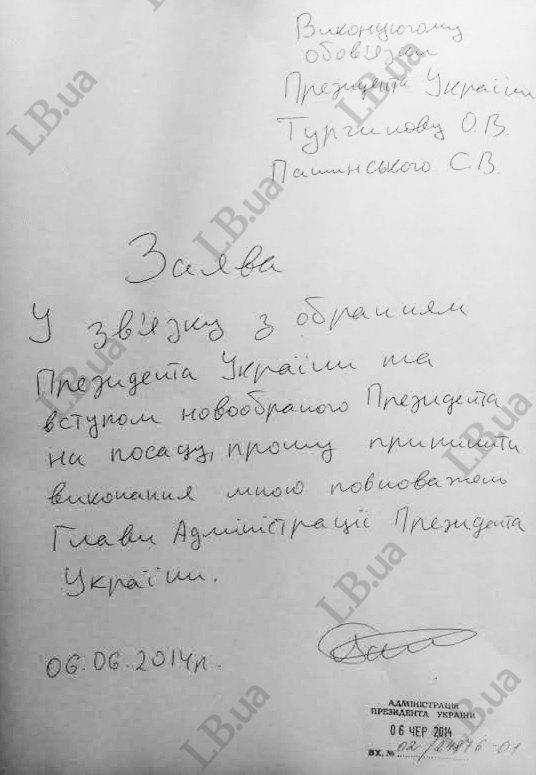 Виконуючому
обов'язки
Президента України
Турчинову О.В.
Пашинського С.В.
Заява
У зв'язку з обранням
Президента України та
вступом новообраного Президента
на посаду, прошу припинити
виконання мною повноважень
Глави Адміністрації Президента
України.
06.06.2014р.
АДМІНІСТРАЦІЯ
ПРЕЗИДЕНТА УКРАЇНИ
06 ЧЕР 2014
ВХ. № 02/24876-01
LB.ua
LB.ua
LB.ua
LB.ua
LB.ua
LB.ua
LB.ua
LB.ua